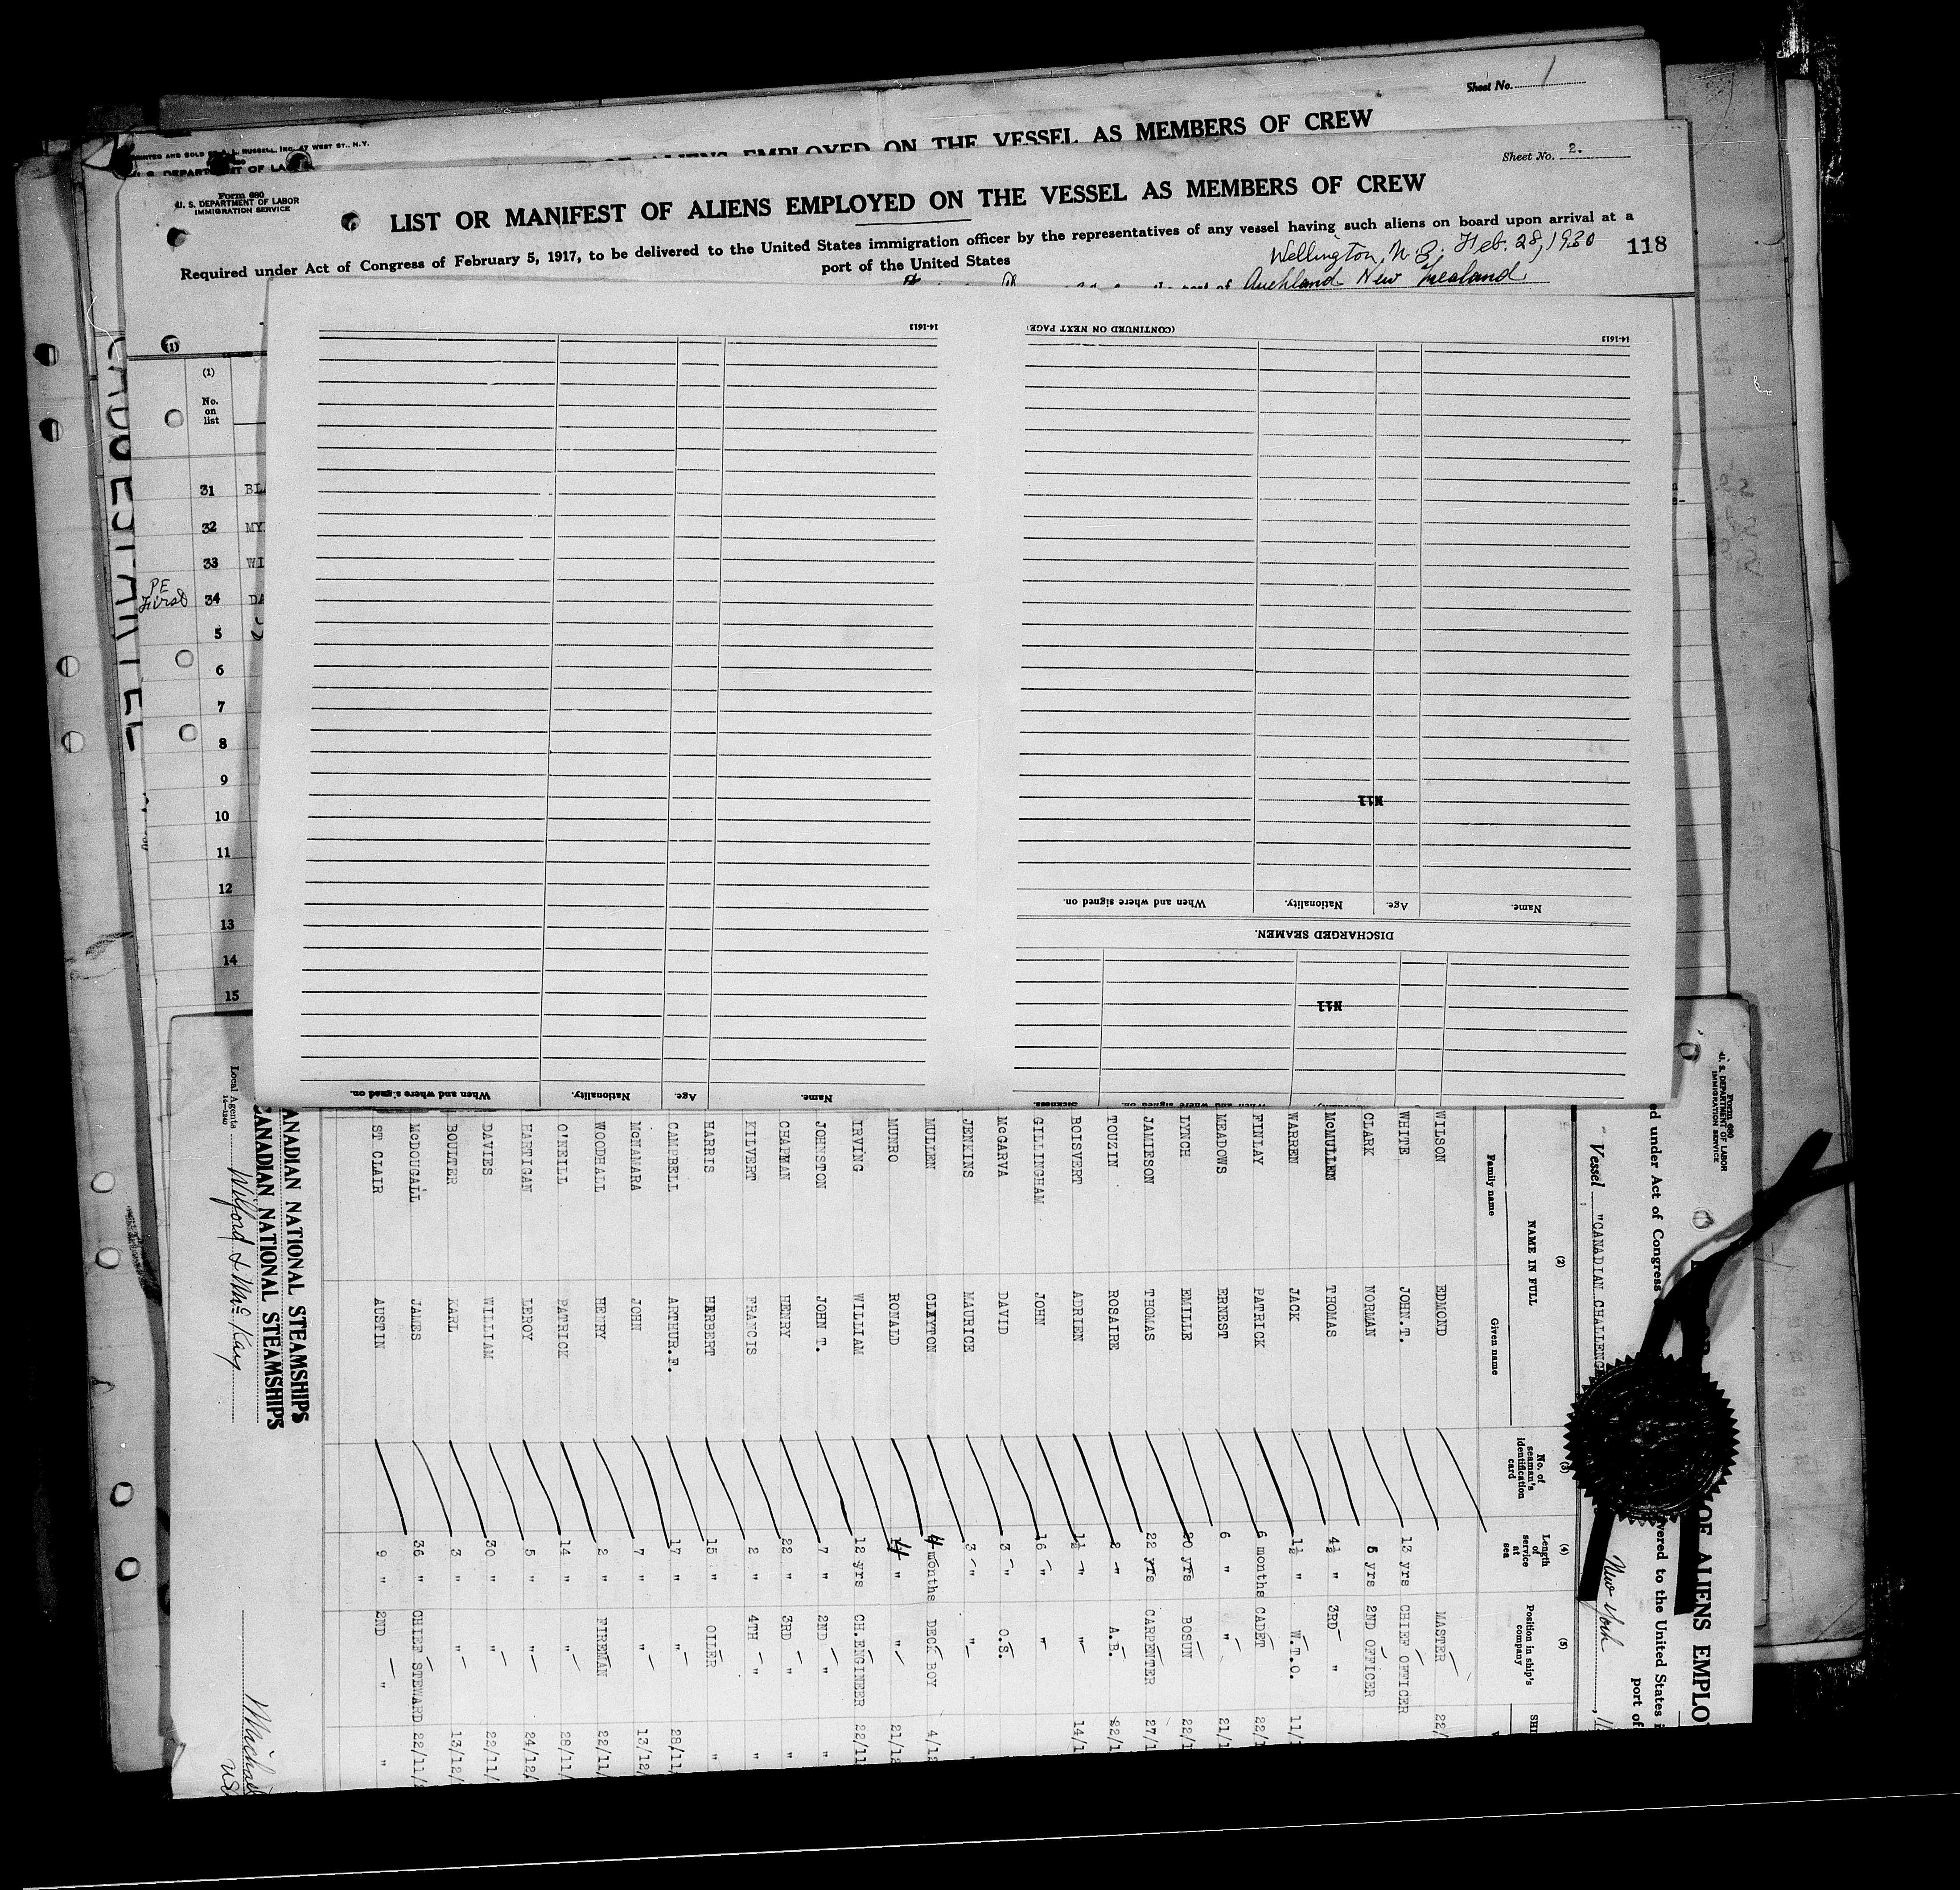 Sheet No. 1
OF ALIENS EMPLOYED ON THE VESSEL AS MEMBERS OF CREW
PRINTED AND SOLD BY A. L. RUSSELL, INC. 47 WEST ST., N.Y.
U. S. DEPARTMENT OF LA
Sheet No. 2.
Form 680
U. S. DEPARTMENT OF LABOR
IMMIGRATION SERVICE
LIST OR MANIFEST OF ALIENS EMPLOYED ON THE VESSEL AS MEMBERS OF CREW
Required under Act of Congress of February 5, 1917, to be delivered to the United States immigration officer by the representatives of any vessel having such aliens on board upon arrival at a
port of the United States
Wellington, N.Z. Feb. 28, 1930
118
the port of Auckland New Zealand
(1)
(1)
No.
on
list
31 BLA
32 MY
33 WI
PE
First
34 DA
5
6
7
8
9
10
11
12
13
14
15
14-1613
14-1613
(CONTINUED ON NEXT PAGE)
Nil
Name. Age. Nationality. When and where signed on.
DISCHARGED SEAMEN.
Nil
Name. Age. Nationality. When and where signed on.
When and where signed on. Sickness.
Form 680
U. S. DEPARTMENT OF LABOR
IMMIGRATION SERVICE
OF ALIENS EMPLO
ed under Act of Congress
vered to the United States i
port of
Vessel "CANADIAN CHALLENGE
New York
(2)
NAME IN FULL
Family name Given name
(3)
No. of
seaman's
identification
card
(4)
Length
of
service
at
sea
(5)
Position in ship's
company
SHI
WILSON EDMOND MASTER 22/
WHITE JOHN.T. 13 yrs CHIEF OFFICER
CLARK NORMAN 5 yrs 2ND OFFICER
McMULLEN THOMAS 4½ " 3RD "
WARREN JACK 1½ " W.T.O. 11/1
FINLAY PATRICK 6 months CADET 22/1
MEADOWS ERNEST 6 " " 21/1
LYNCH EMILLE 20 yrs BOSUN 22/1
JAMIESON THOMAS 22 yrs CARPENTER 27/1
TOUZIN ROSAIRE 2 " A.B. 22/1
BOISVERT ADRIEN 1½ " " 14/1
GILLINGHAM JOHN 16 " "
McGARVA DAVID 3 " O.S.
JENKINS MAURICE 3 " " "
MULLEN CLAYTON 4 months DECK BOY 4/12
MUNRO RONALD 4 " " 21/12
IRVING WILLIAM 12 yrs CH.ENGINEER 22/11
JOHNSTON JOHN T. 7 " 2ND " "
CHAPMAN HENRY 22 " 3RD " "
KILVERT FRANCIS 2 " 4TH " "
HARRIS HERBERT 15 " OILER "
CAMPBELL ARTHUR.F. 17 " " 28/11/
McNAMARA JOHN 7 " " 13/12/
WOODHALL HENRY 2 " FIREMAN 22/11/
O'NEILL PATRICK 14 " " 28/11/
HARTIGAN LEROY 5 " " 24/12/
DAVIES WILLIAM 30 " " 22/11/
BOULTER KARL 3 " " 13/12/
McDOUGALL JAMES 36 " CHIEF STEWARD 22/11/2
ST CLAIR AUSTIN 9 " 2ND " "
ANADIAN NATIONAL STEAMSHIPS
CANADIAN NATIONAL STEAMSHIPS
Local Agents Wilford & McKay
14—1240
Michael